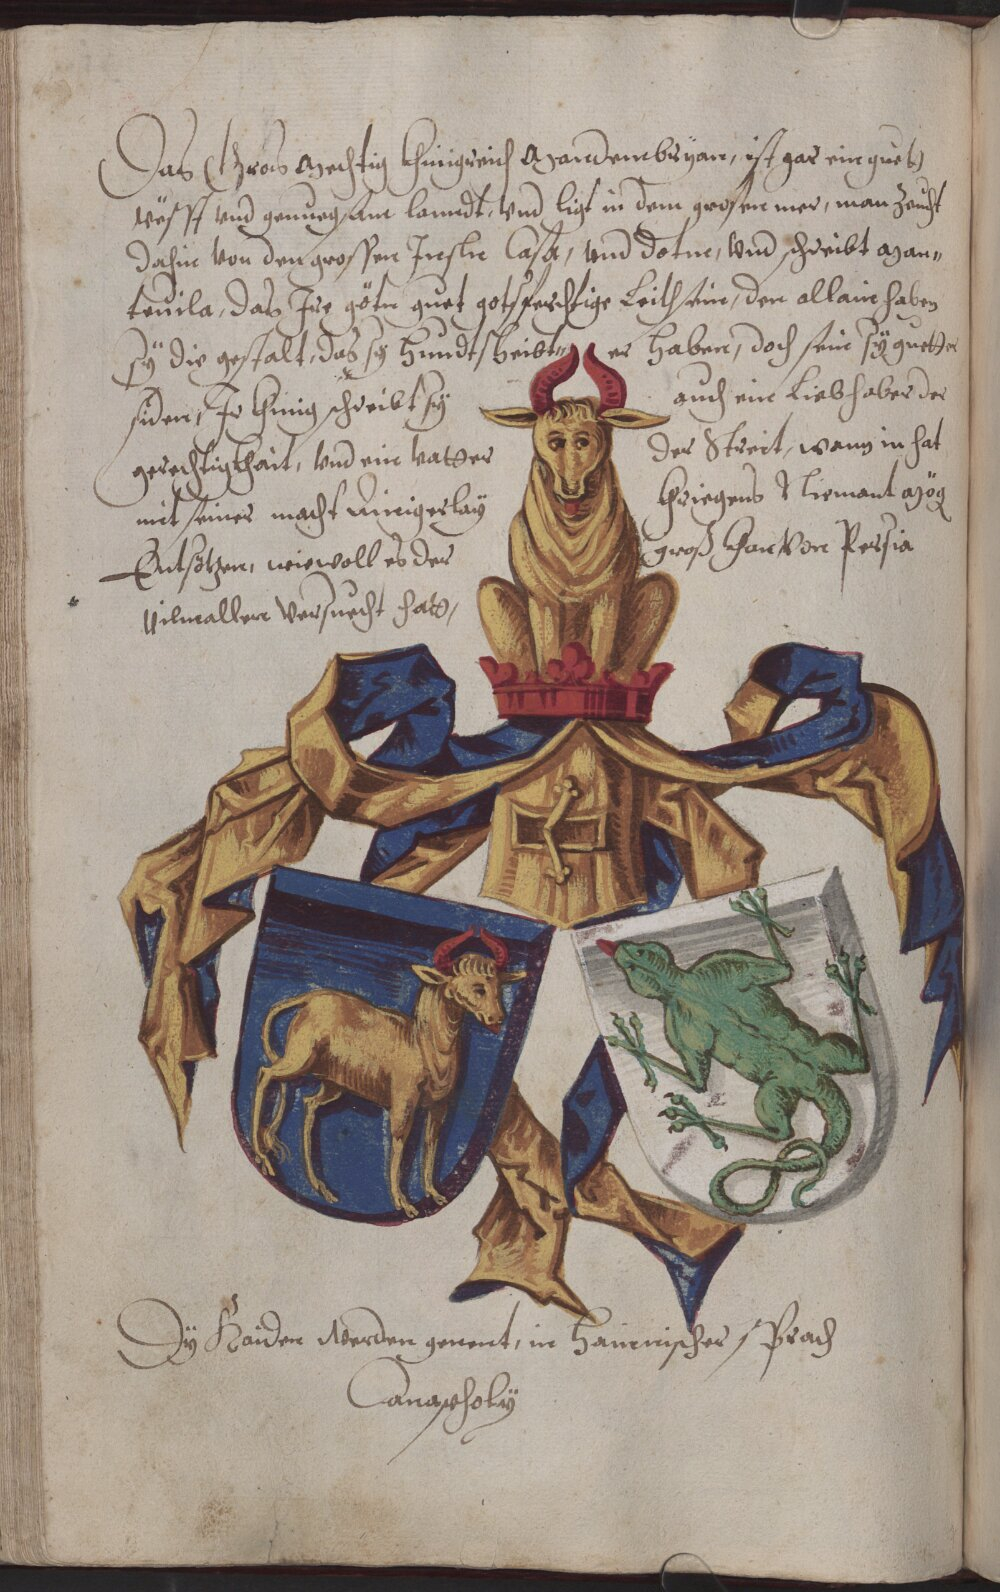 Das Gros Mechtig Khinigreich Mandembryan, ist gar ein guet,
vesst vnd genuegsam lanndt, vnd ligt in dem grossen mer, man zeucht
dahin von den grossen Inseln Casa, vnd Dotin, vnd schreibt Man-
tevila, das Ire götn guet gotsferchtige Leith sein, den allain haben
sÿ die gestalt, das sÿ Hundtsheibter haben, doch sein sÿ guetter
siden, Ir Khinig schreibt sÿ auch ein Liebhaber der
gerechtigkhait, vnd ein vatter der Streit, wann in hat
mit seiner macht Ainigerlaÿ Khriegens Niemant Mög
Entsötzen, wiewoll es der groß Han Von Persia
Vilmallen versuecht hatt,
Dÿ Haiden Werden genent, in Haimischer Sprach
Canapholÿ